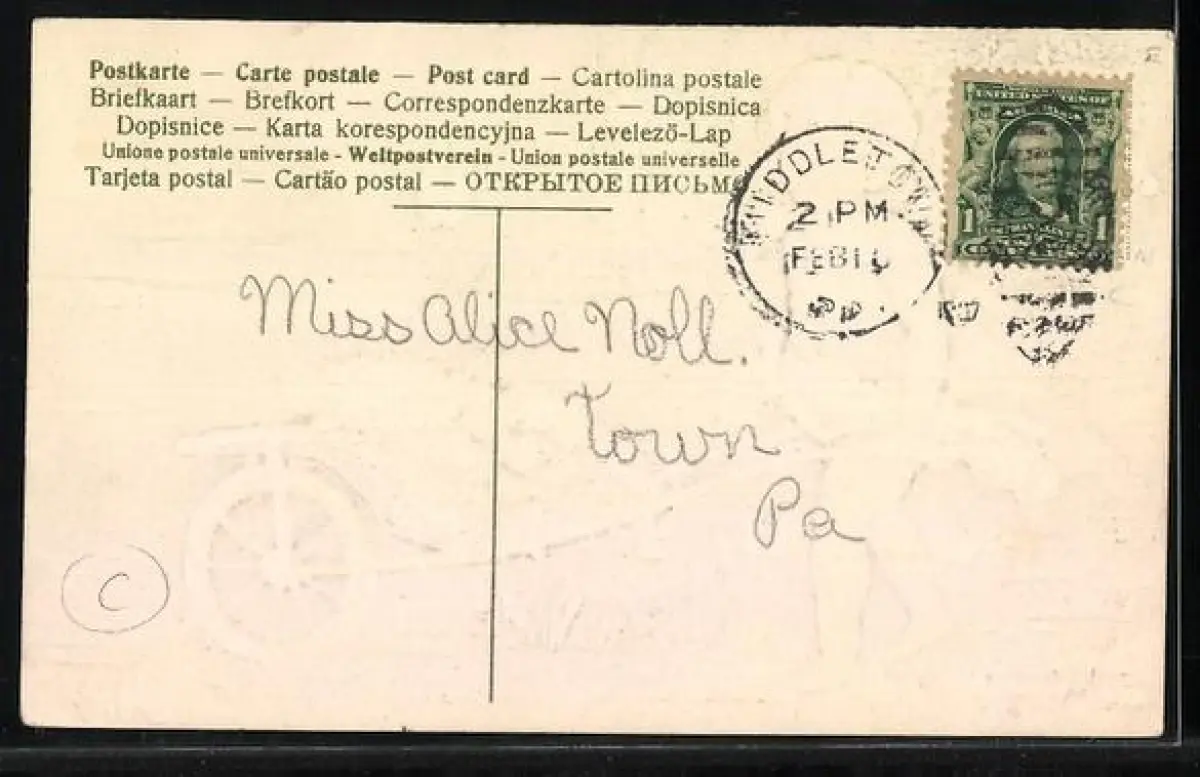 Postkarte — Carte postale — Post card — Cartolina postale
Briefkaart — Brefkort — Correspondenzkarte — Dopisnica
Dopisnice — Karta korespondencyjna — Levelező-Lap
Unione postale universale - Weltpostverein - Union postale universelle
Tarjeta postal — Cartão postal — ОТКРЫТОЕ ПИСЬМО
MIDDLETOWN
2 PM
FEB
1 1
Miss Alice Noll.
Town
Pa
C